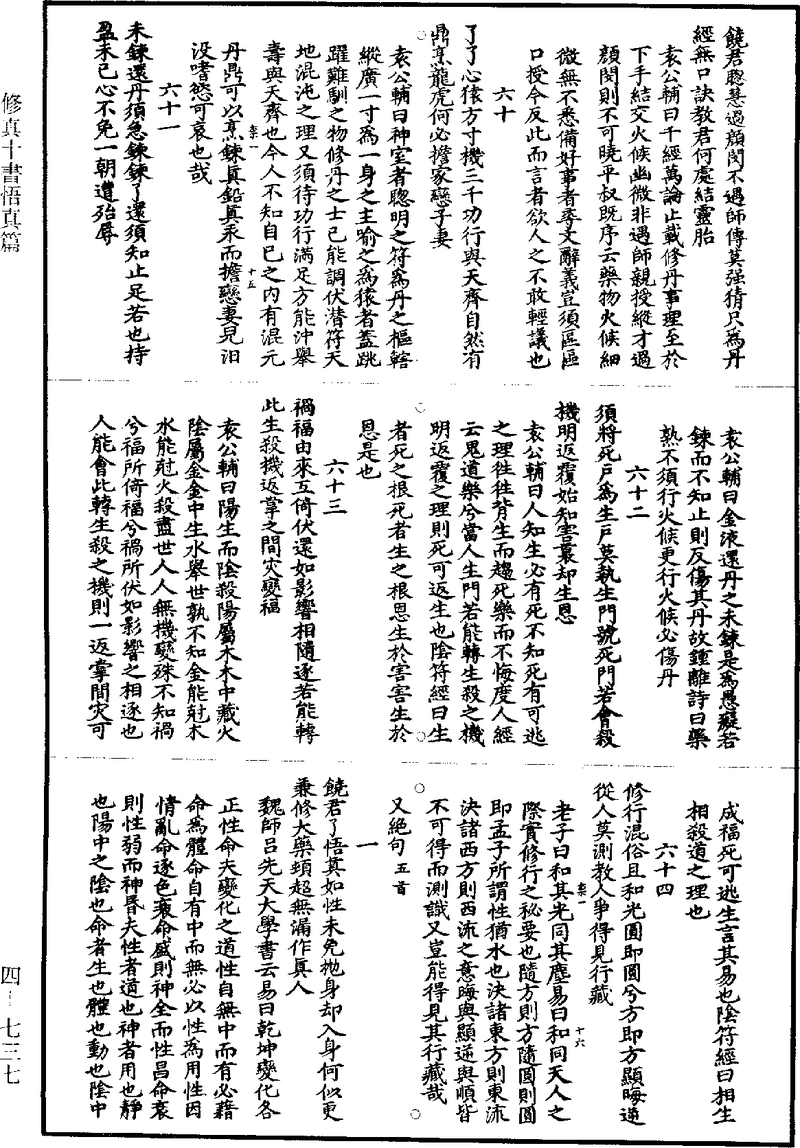 饒君聰慧過顔閔不遇師傳莫强猜只爲丹
經無口訣教君何處結靈胎
袁公輔曰千經萬論止載修丹事理至於
下手結交火候幽微非遇師親授縱才過
顔閔則不可曉平叔既序云藥物火候細
微無不悉備好事者尋文解義豈須區區
口授今反此而言者欲人之不敢輕議也
六十
了了心猿方寸機三千功行與天齊自然有
鼎烹龍虎何必擔家戀子妻
袁公輔曰神室者聰明之符爲丹之樞轄
縱廣一寸爲一身之主喻之爲猿者蓋跳
躍難馴之物修丹之士已能調伏潜符天
地混沌之理又須待功行滿足方能沖舉
壽與天齊也今人不知自己之内有混元
丹鼎可以烹鍊真鉛真汞而擔戀妻兒汨
没嗜慾可哀也哉
六十一
未鍊還丹須急鍊鍊了還須知止足若也持
盈未已心不免一朝遭殆辱
袁公輔曰金液還丹之未鍊是爲愚癡若
鍊而不知止則反傷其丹故鍾離詩曰藥
熟不須行火候更行火候必傷丹
六十二
須將死户爲生户莫執生門號死門若會殺
機明返覆始知害裏却生恩
袁公輔曰人知生必有死不知死有可逃
之理往往背生而趨死樂而不悔度人經
云鬼道樂兮當人生門若能轉生殺之機
明返覆之理則死可返生也陰符經曰生
者死之根死者生之根恩生於害害生於
恩是也
六十三
禍福由來互倚伏還如影響相隨逐若能轉
此生殺機返掌之間灾變福
袁公輔曰陽生而陰殺陽屬木木中藏火
陰屬金金中生水舉世孰不知金能尅木
水能尅火殺盡世人人無機變殊不知禍
兮福所倚福兮禍所伏如影響之相逐也
人能會此轉生殺之機則一返掌間灾可
成福死可逃生言其易也陰符經曰相生
相殺道之理也
六十四
修行混俗且和光圓即圓兮方即方顯晦逆
從人莫測教人爭得見行藏
老子曰和其光同其塵易曰和同天人之
際實修行之秘要也隨方則方隨圓則圓
即孟子所謂性猶水也決諸東方則東流
決諸西方則西流之意晦與顯逆與順皆
不可得而測識又豈能得見其行藏哉
又絶句五首
一
饒君了悟真如性未免抛身却入身何似更
兼修大藥頓超無漏作真人
魏師吕先天大學書云易曰乾坤變化各
正性命夫變化之道性自無中而有必藉
命爲體命自有中而無必以性爲用性因
情亂命逐色衰命盛則神全而性昌命衰
則性弱而神昏夫性者道也神者用也靜
也陽中之陰也命者生也體也動也陰中
十五
十六
修真十書悟真篇
四—七三七